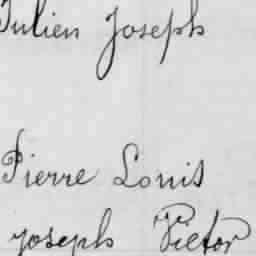 Julien Joseph
Pierre Louis
Joseph Victor